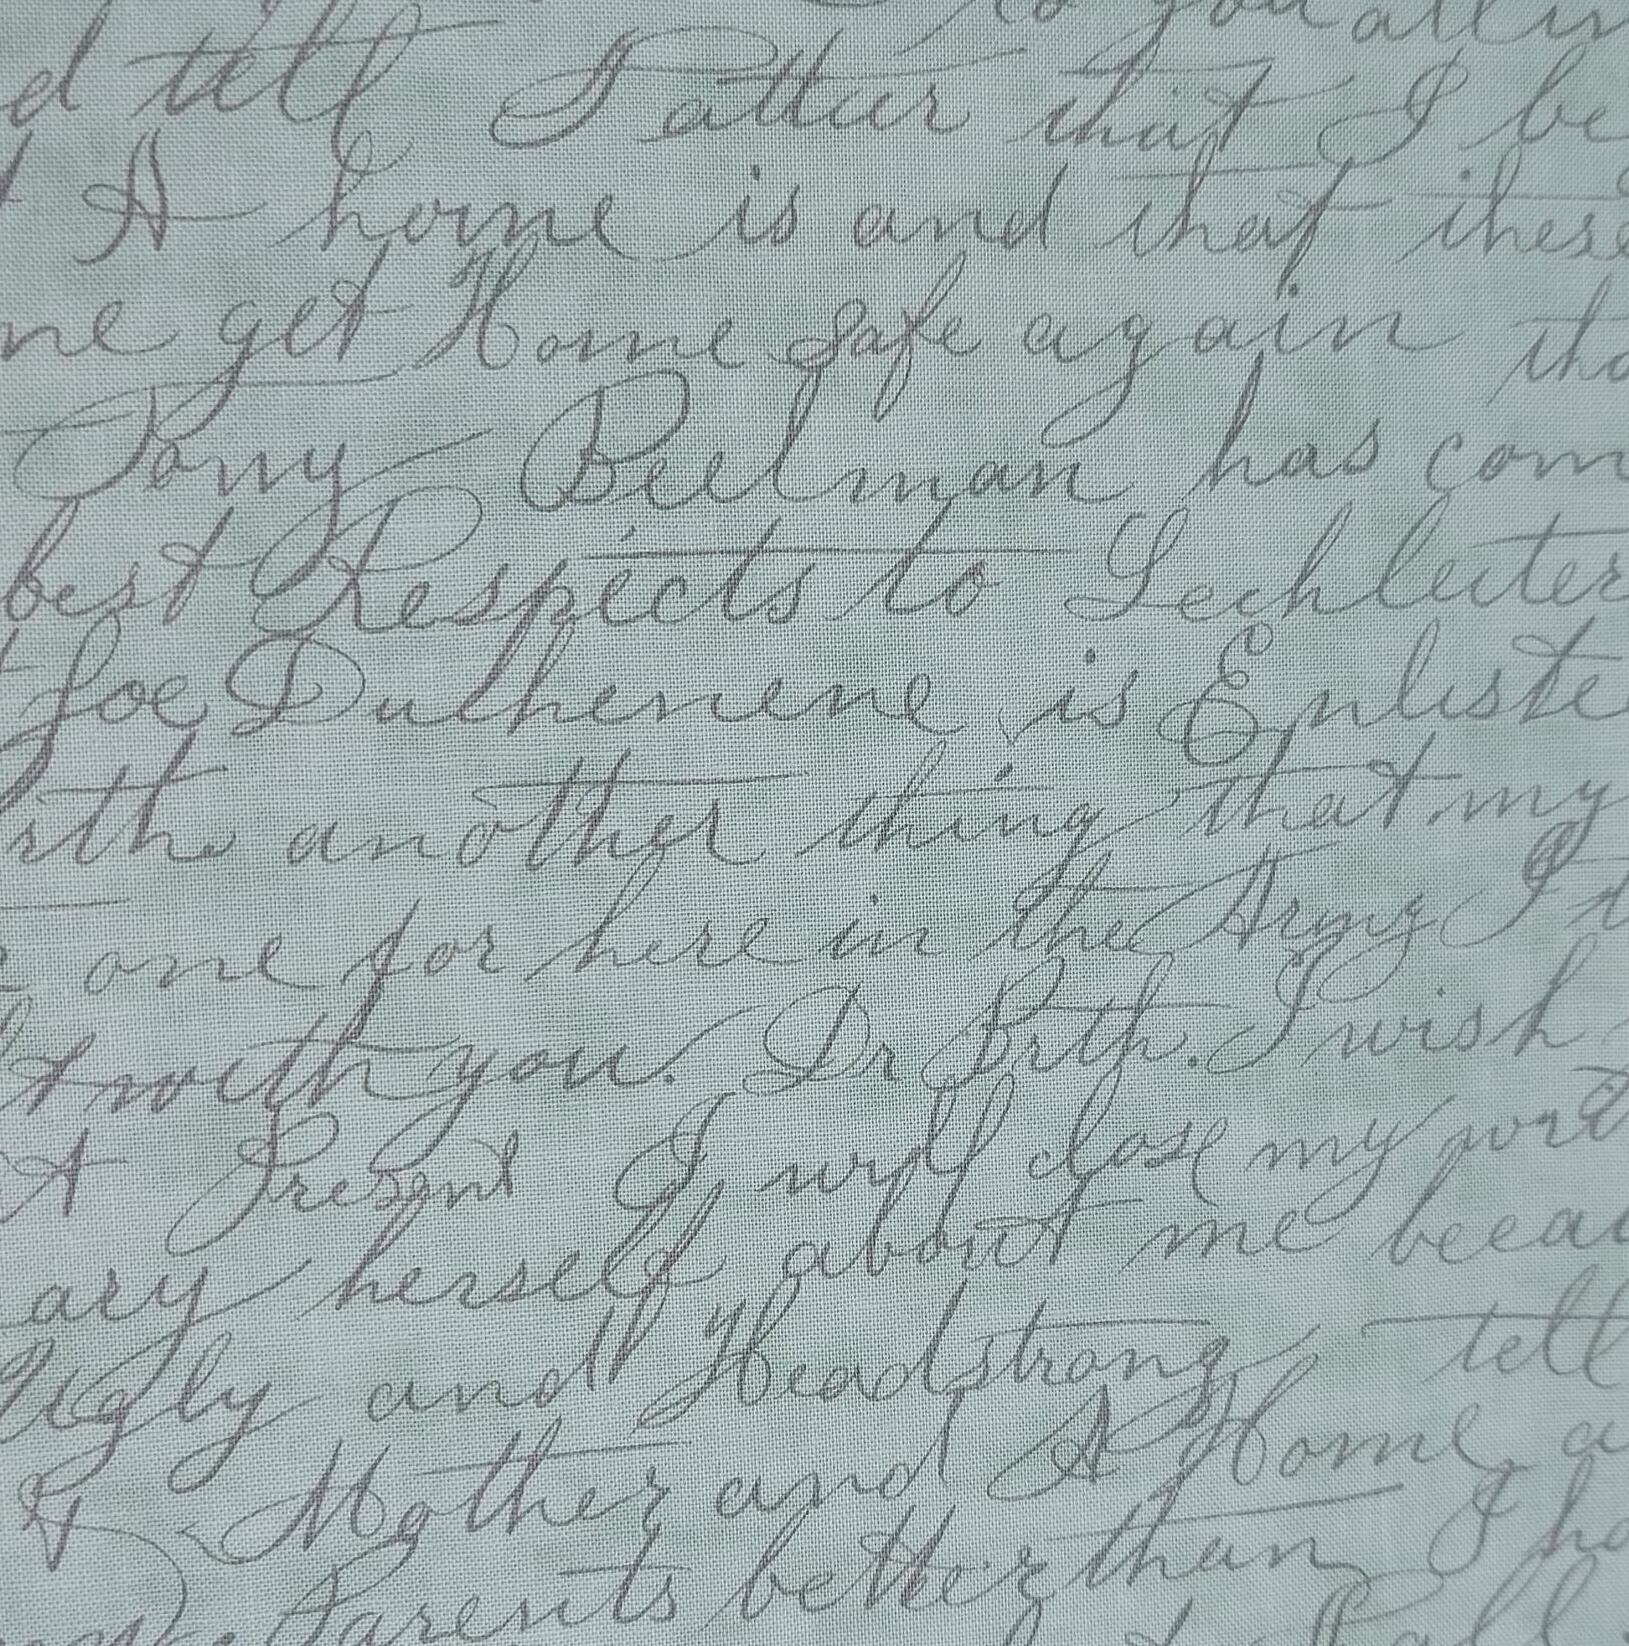 to you all in
d tell Father that I be
A home is and that these
me get Home safe again tho
Tony Beelman has com
best Respects to Lechleiter
Joe Duthenene is Enliste
another thing that my
one for here in the Army I
with you. Dr Birth. I wish
A Present I will close my writ
ary herself about me becau
Ugly and Headstrong, tell
A Mother and A Home a
Parents better than I ha